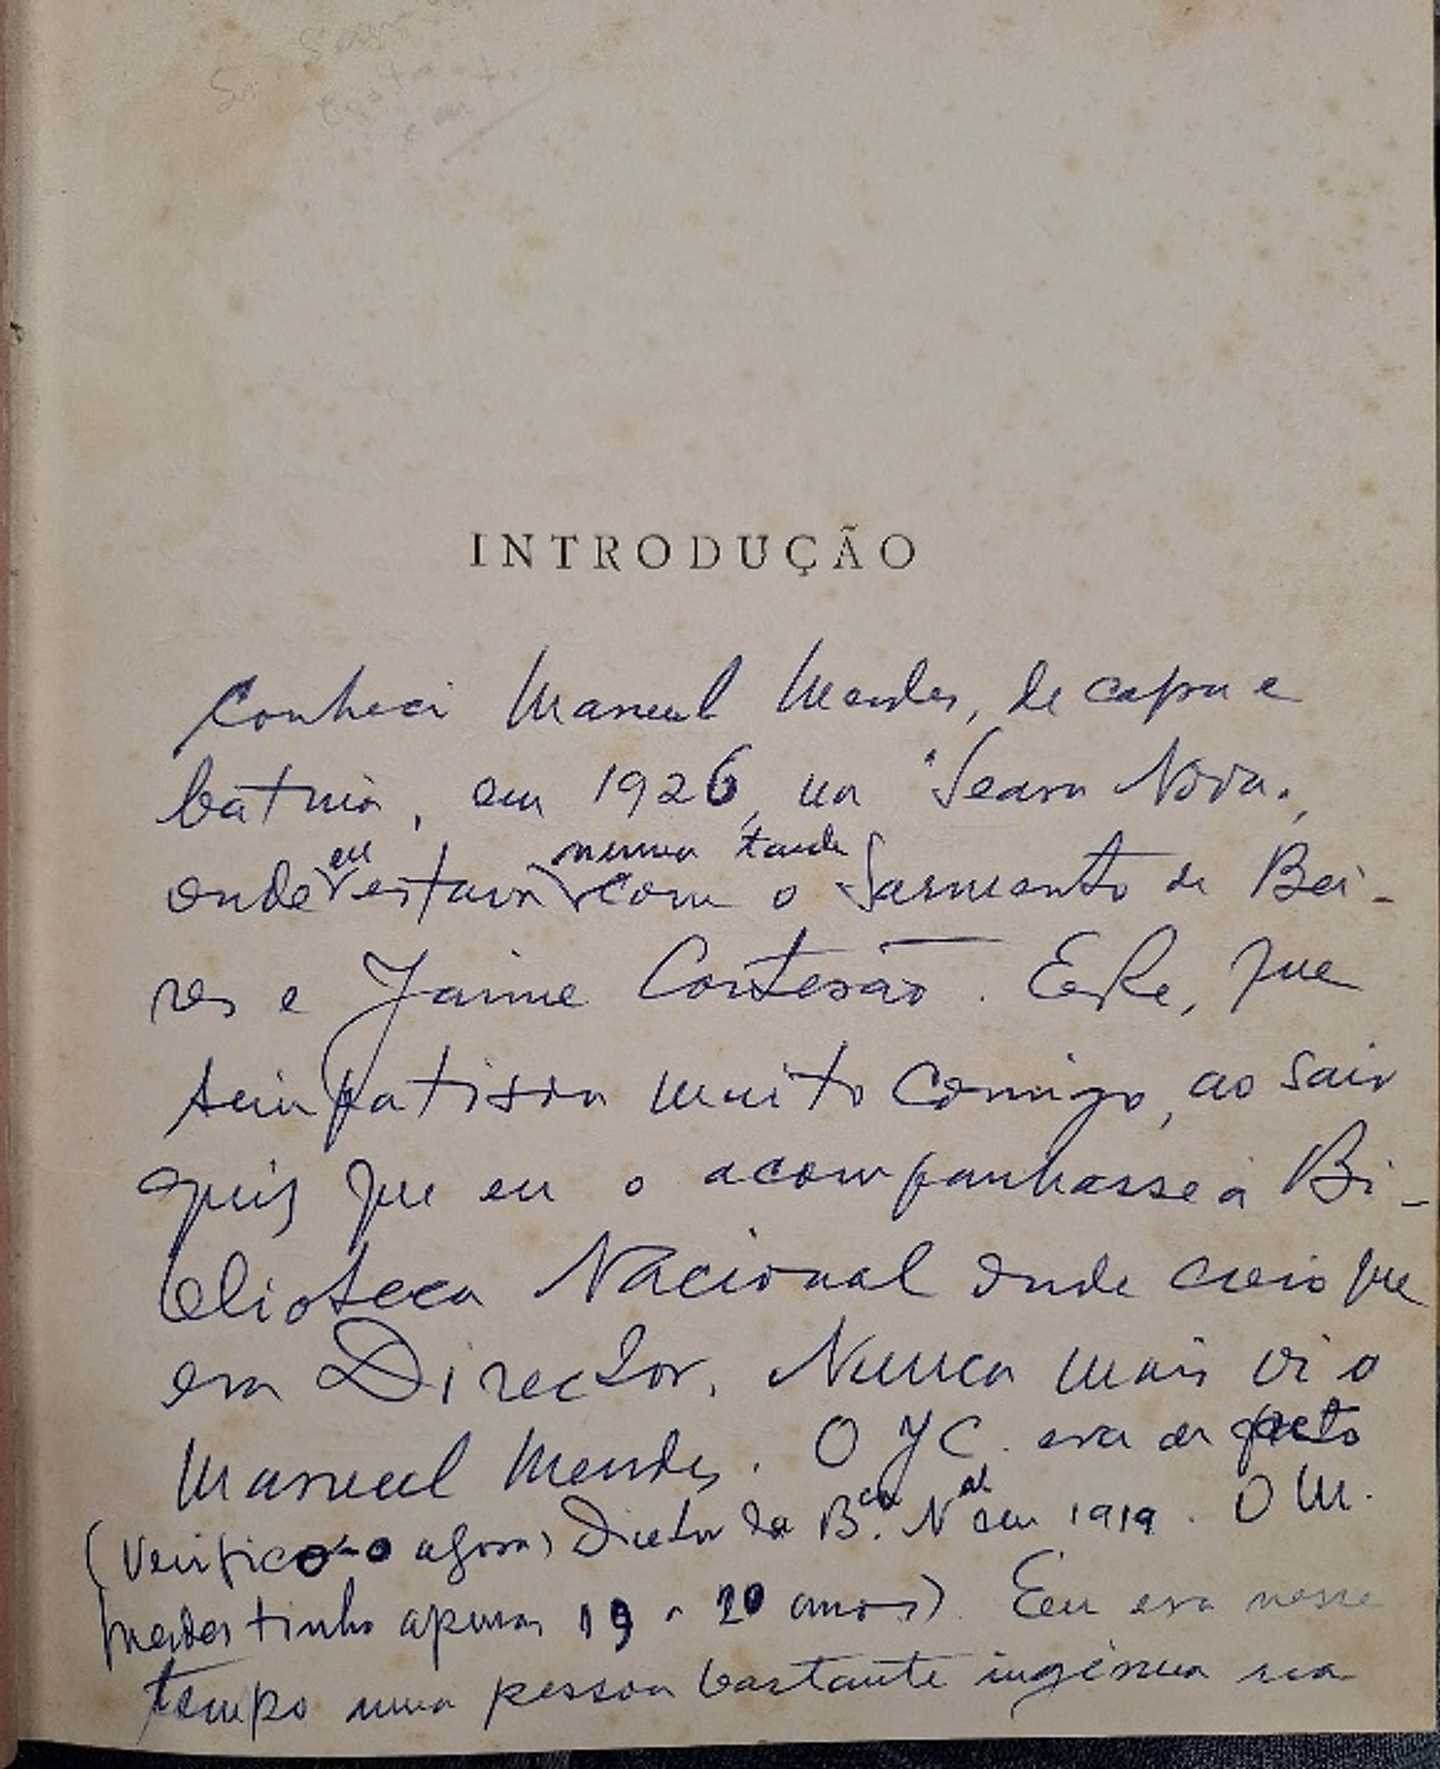 INTRODUÇÃO
Conheci Manuel Mendes, de capa e
batina, em 1926, na "Seara Nova",
eu numa tarde
onde estava com o Sarmento de Bei-
res e Jaime Cortesão. Este, que
simpatisou muito comigo, ao sair
quis que eu o acompanhasse à Bi-
blioteca Nacional onde creio que
era Director. Nunca mais vi o
Manuel Mendes. O JC. era de facto
(verifico-o agora) Director da B.ca Nal em 1919. O M.
Mendes tinha apenas 19 a 20 anos). Eu era nesse
tempo uma pessoa bastante ingénua na